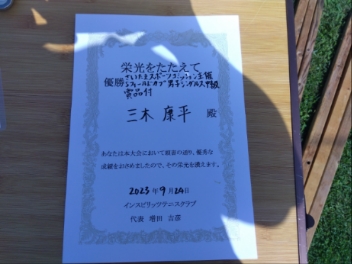 栄光をたたえて
さいたまスポーツコミッション主催
優勝 シフィールドオブ男子シングルス中級
賞品付
三木 康平 殿
あなたは本大会において頭書の通り、優秀な
成績をおさめましたので、その栄光を讃えます。
2023年9月20日
インスピリッツテニスクラブ
代表 増田 吉彦